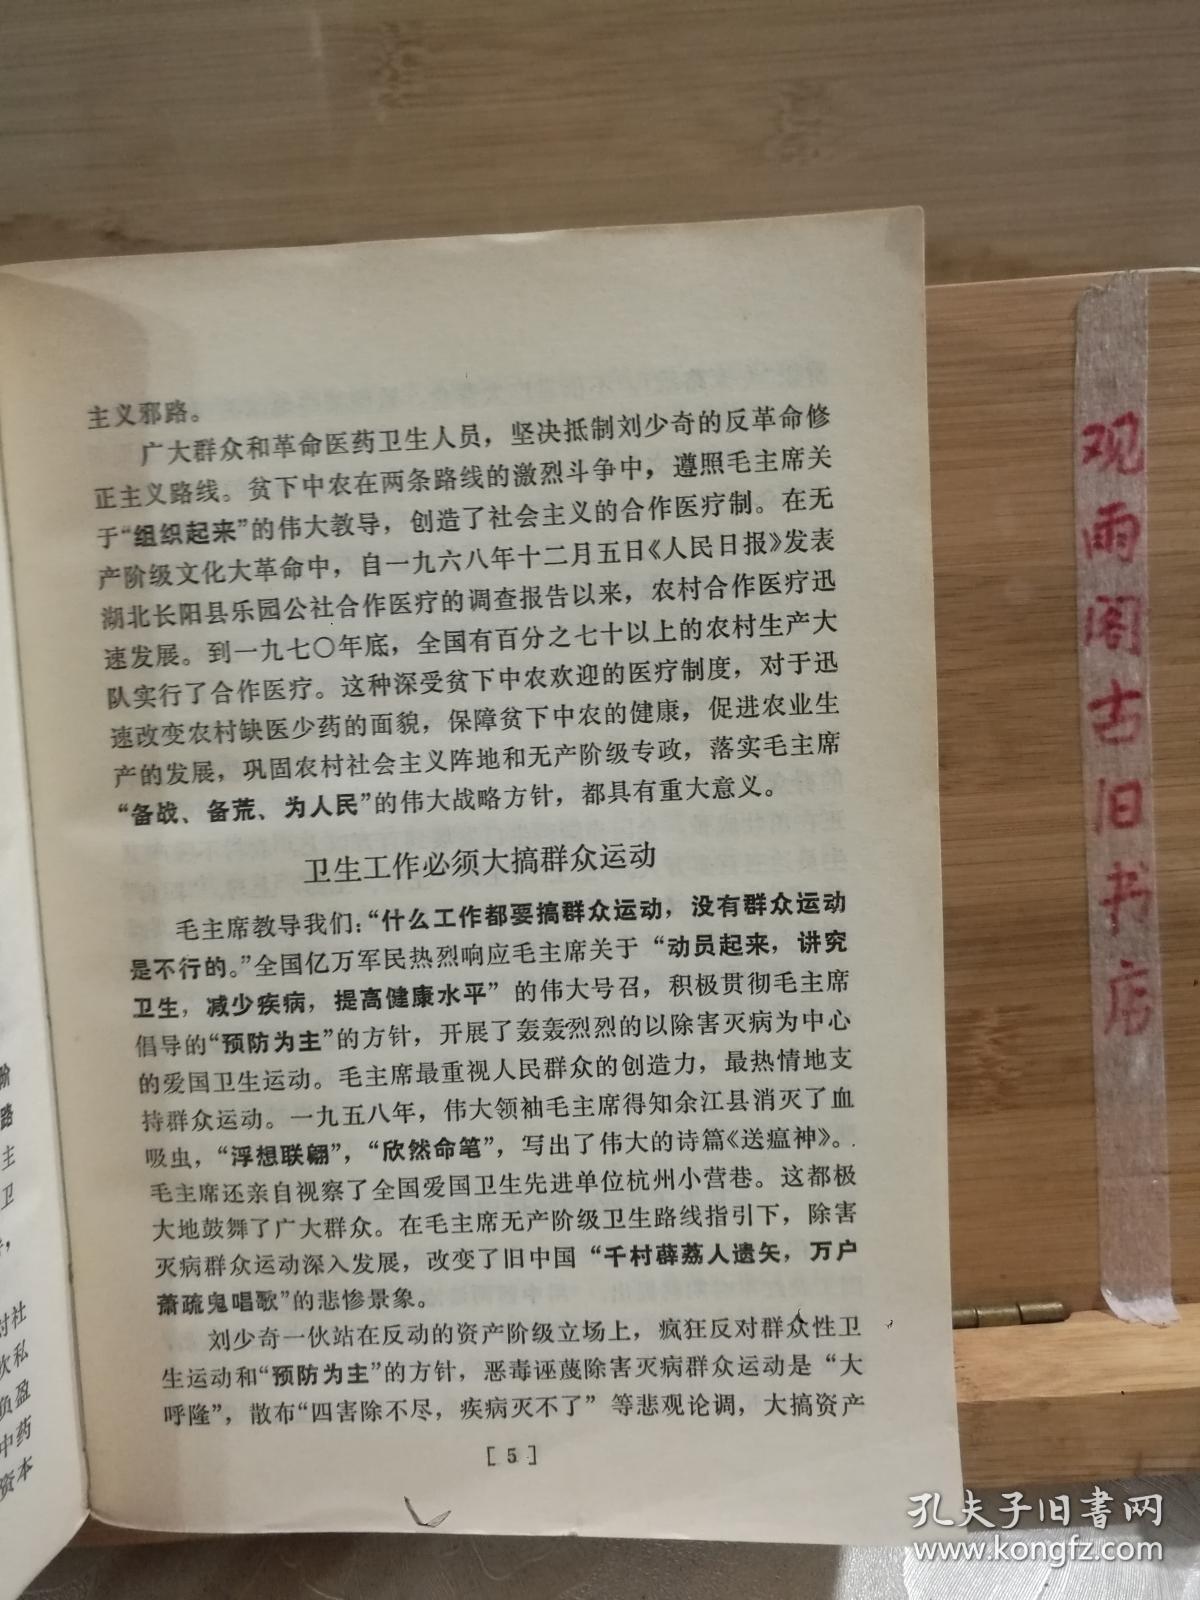 主义邪路。
广大群众和革命医药卫生人员，坚决抵制刘少奇的反革命修
正主义路线。贫下中农在两条路线的激烈斗争中，遵照毛主席关
于“组织起来”的伟大教导，创造了社会主义的合作医疗制。在无
产阶级文化大革命中，自一九六八年十二月五日《人民日报》发表
湖北长阳县乐园公社合作医疗的调查报告以来，农村合作医疗迅
速发展。到一九七〇年底，全国有百分之七十以上的农村生产大
队实行了合作医疗。这种深受贫下中农欢迎的医疗制度，对于迅
速改变农村缺医少药的面貌，保障贫下中农的健康，促进农业生
产的发展，巩固农村社会主义阵地和无产阶级专政，落实毛主席
“备战、备荒、为人民”的伟大战略方针，都具有重大意义。
卫生工作必须大搞群众运动
毛主席教导我们：“什么工作都要搞群众运动，没有群众运动
是不行的。”全国亿万军民热烈响应毛主席关于“动员起来，讲究
卫生，减少疾病，提高健康水平”的伟大号召，积极贯彻毛主席
倡导的“预防为主”的方针，开展了轰轰烈烈的以除害灭病为中心
的爱国卫生运动。毛主席最重视人民群众的创造力，最热情地支
持群众运动。一九五八年，伟大领袖毛主席得知余江县消灭了血
吸虫，“浮想联翩”，“欣然命笔”，写出了伟大的诗篇《送瘟神》。
毛主席还亲自视察了全国爱国卫生先进单位杭州小营巷。这都极
大地鼓舞了广大群众。在毛主席无产阶级卫生路线指引下，除害
灭病群众运动深入发展，改变了旧中国“千村薜荔人遗矢，万户
萧疏鬼唱歌”的悲惨景象。
刘少奇一伙站在反动的资产阶级立场上，疯狂反对群众性卫
生运动和“预防为主”的方针，恶毒诬蔑除害灭病群众运动是“大
呼隆”，散布“四害除不尽，疾病灭不了”等悲观论调，大搞资产
[5]
路
主
卫
对社
欠私
负盈
中药
资本
观雨阁古旧书店
孔夫子旧书网
www.kongfz.com